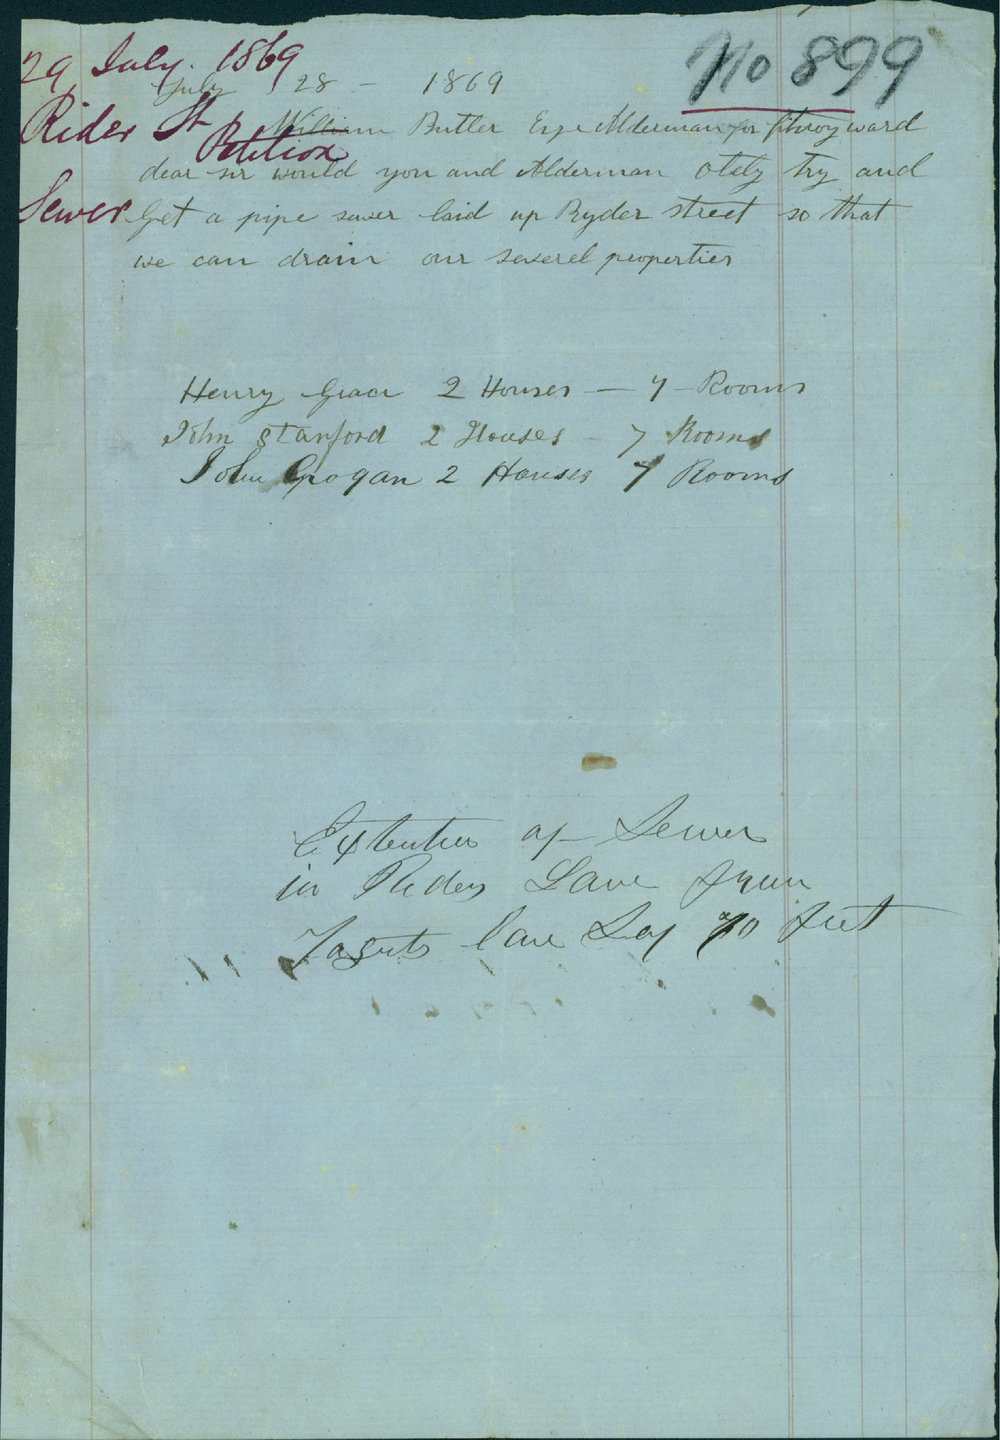 29 July. 1869
No 899
July 28 - 1869
Rider St
Petition
Sewer
William Butler Esqr Alderman for fitzroy ward
dear sir would you and Alderman otely try and
Get a pipe sewer laid up Ryder street so that
we can drain our severel properties
Henry Grace 2 Houses — 7 - Rooms
John Stanford 2 Houses - 7 Rooms
John Grogan 2 Houses 7 Rooms
of Sewer
in Riders Lane from
lane Say 70 feet